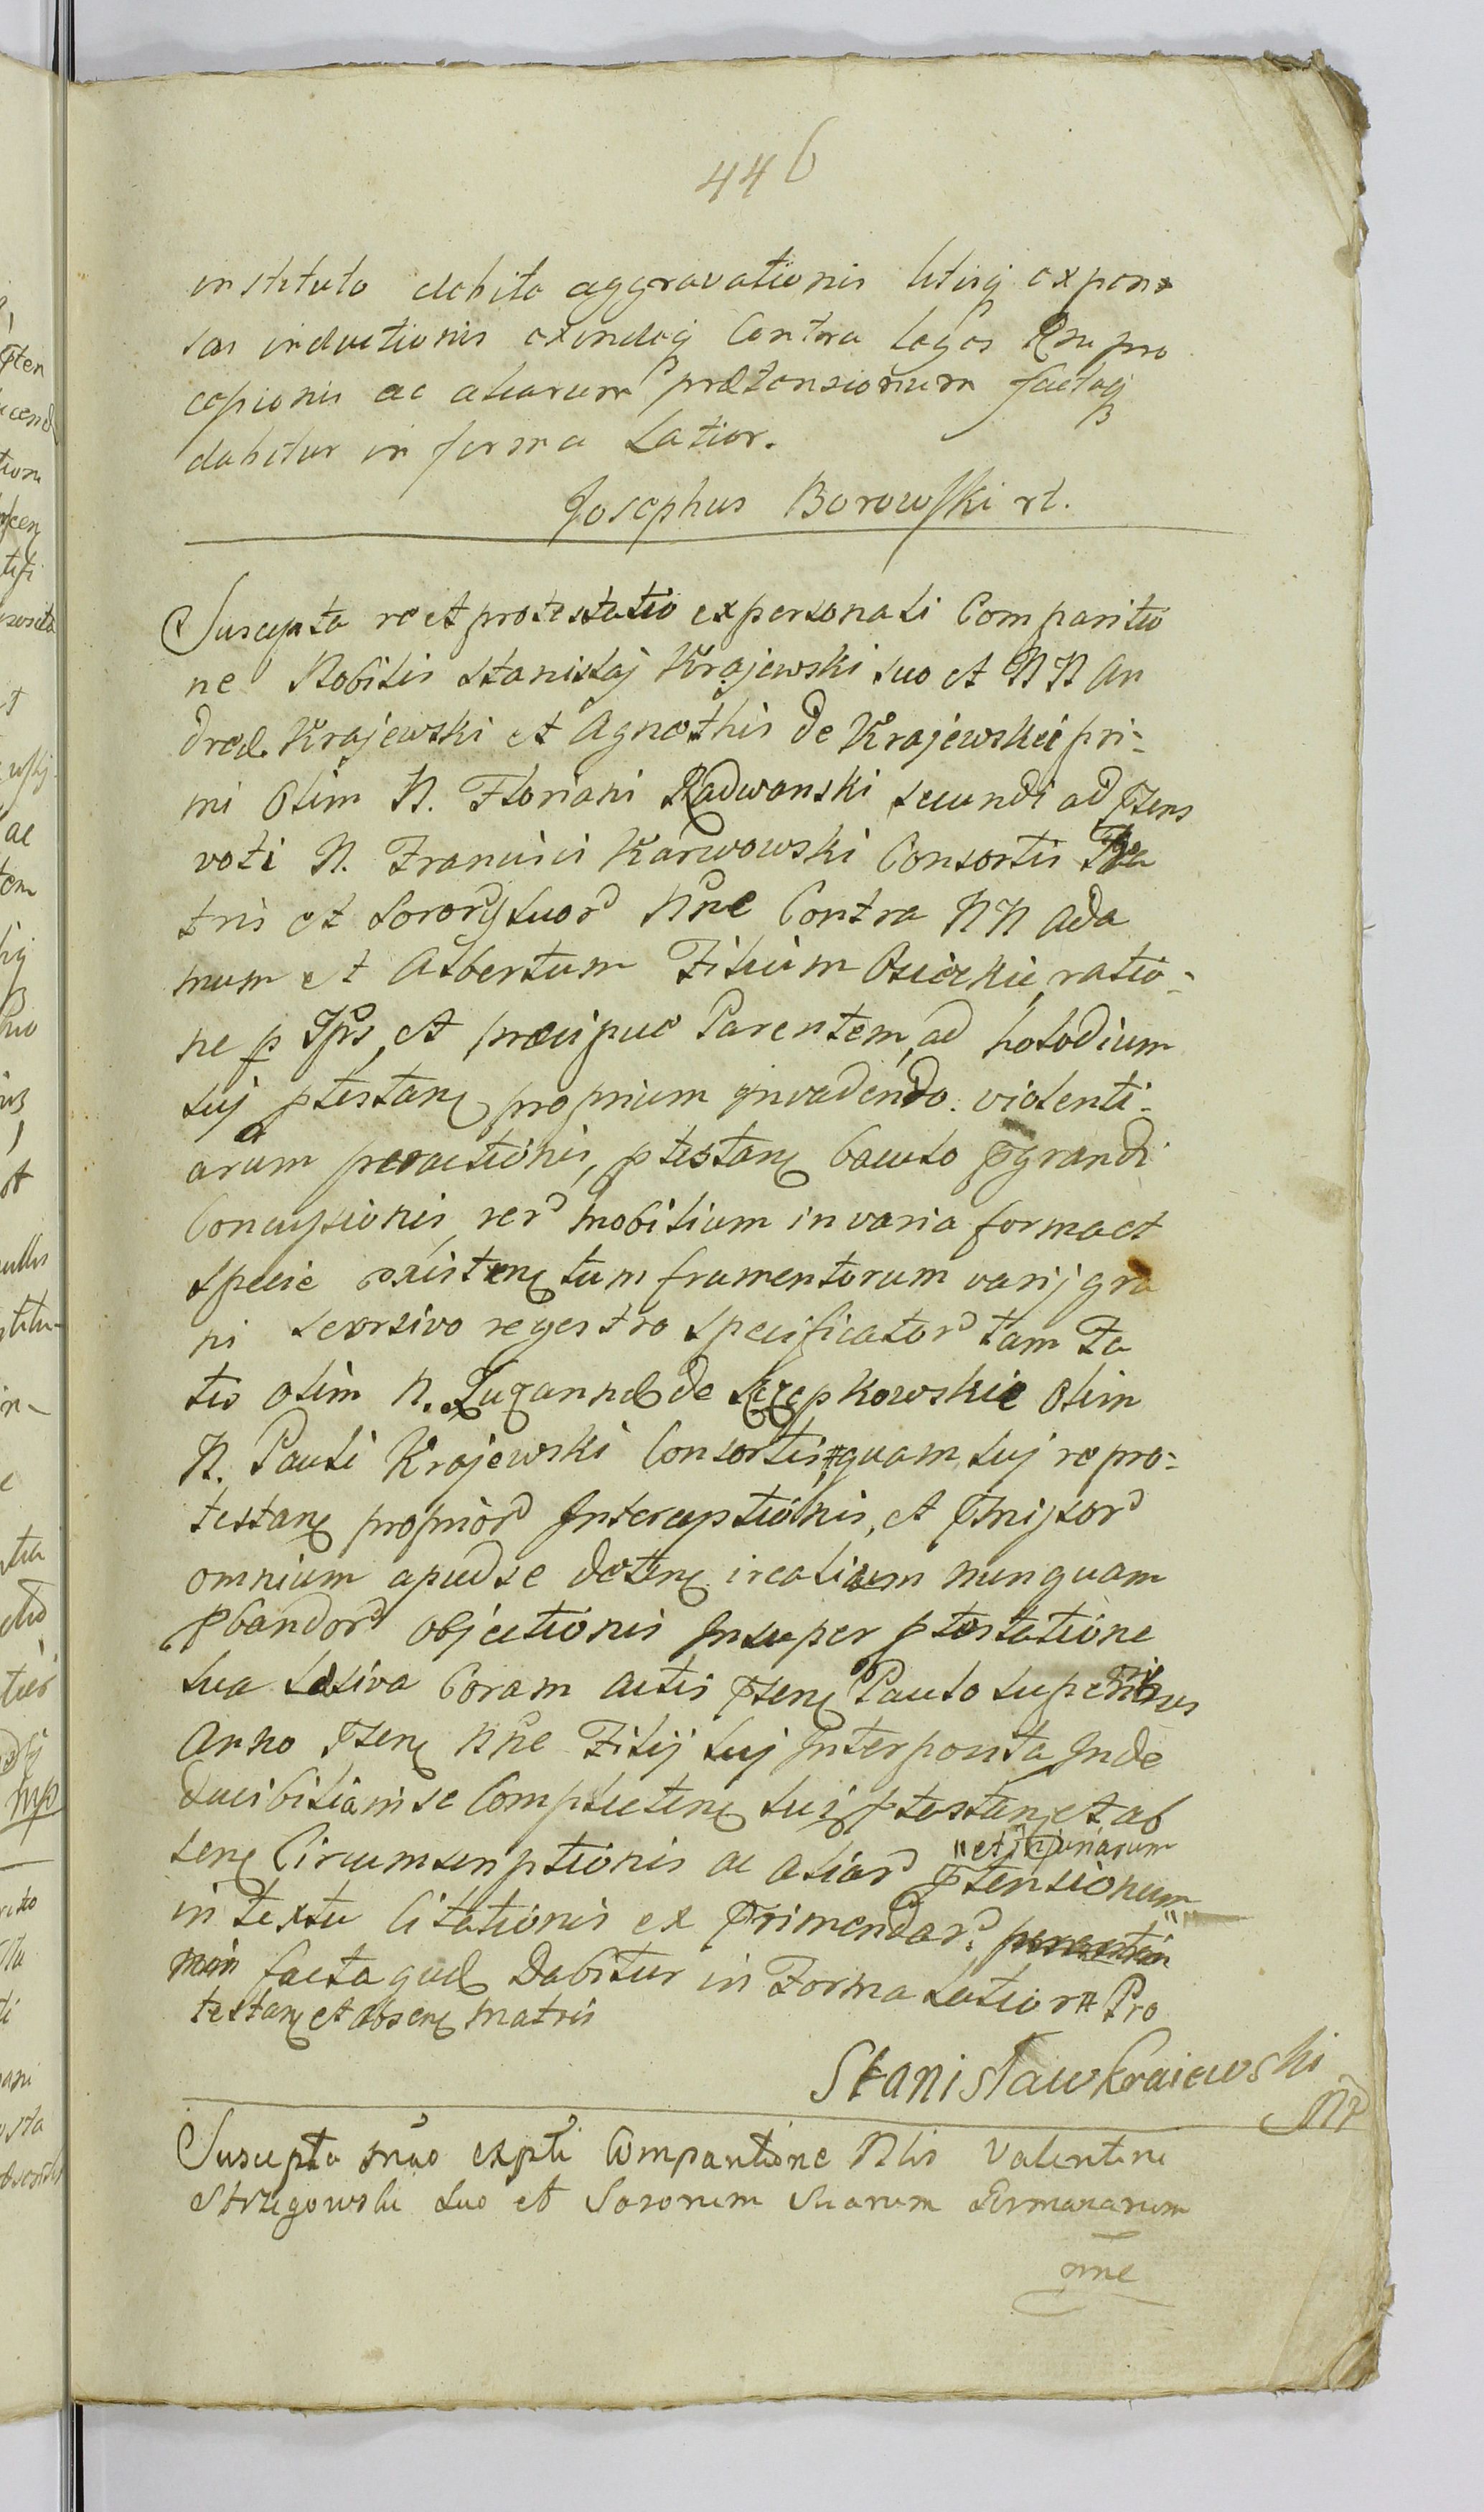 446
instituto debito aggravationis litisq expen=
sas inductionis exindeq Contra Leges Rnu pro
cepionis ac aliarum prætensionum factaq
dabitur in forma Latior.
Josephus Borowski rt.
Suscepta reetprotestatio expersonali Comparitio
ne Nobilis Stanislaj Krajewski suo et NN An
dreæ Krajewski et Agnethis de Krajewskie pri=
mi olim N. Floriani Radwanski secundi ad pñens
voti N. Francisci Karwowski Consortis Fra
tris et Sororq suor nñe Contra NN Ada
mum et Albertum Filium Osieckie, ratio=
ne p Ips, et præcipue Parentem, ad holodium
suj ptestanͨ proprium invadendo. violenti=
arum peractionis, ptestanͨ baculo pgrandi
Concusionis, rer mobilium in varia forma et
specie existenͨ tum frumentorum varij gra
ni seorsivo regestro specificator tam Fa
tis olim N. Zuzannæ de Szczepkowskie olim
N. Pauli Krajewski Consortis, quam suj repro=
testanͨ proprior Interceptionis, et pmisor
omnium apud se detenͨ irealium nunquam
pbandor objectionis Insuper ptestatione
sua Læsiva Coram actis psenͨ Paulo superius
Anno psenͨ nñe Filij suj Interposita Inde
ducibiliam se Complectenͨ suj ptestanͨ et ab
senͨ Circumscriptionis ac aliar ptensionum
"et injuriarum
in textu Citationis ex primendar.
min facta quæ Dabitur in Forma Latior Pro
testanͨ et absenͨ matris
Stanisław Kraiewski
mp
Suscepta mño expli Comparitione Nlis Valentini
Strzegowski suo et Sororum suarum Germanarum
nñe